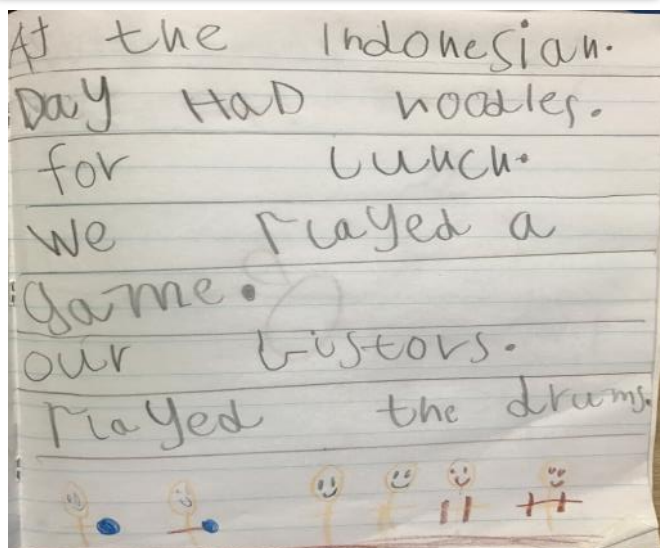 At the Indonesian.
Day HaD noodles.
for Lunch.
we played a
game.
our vistors.
played the drums.